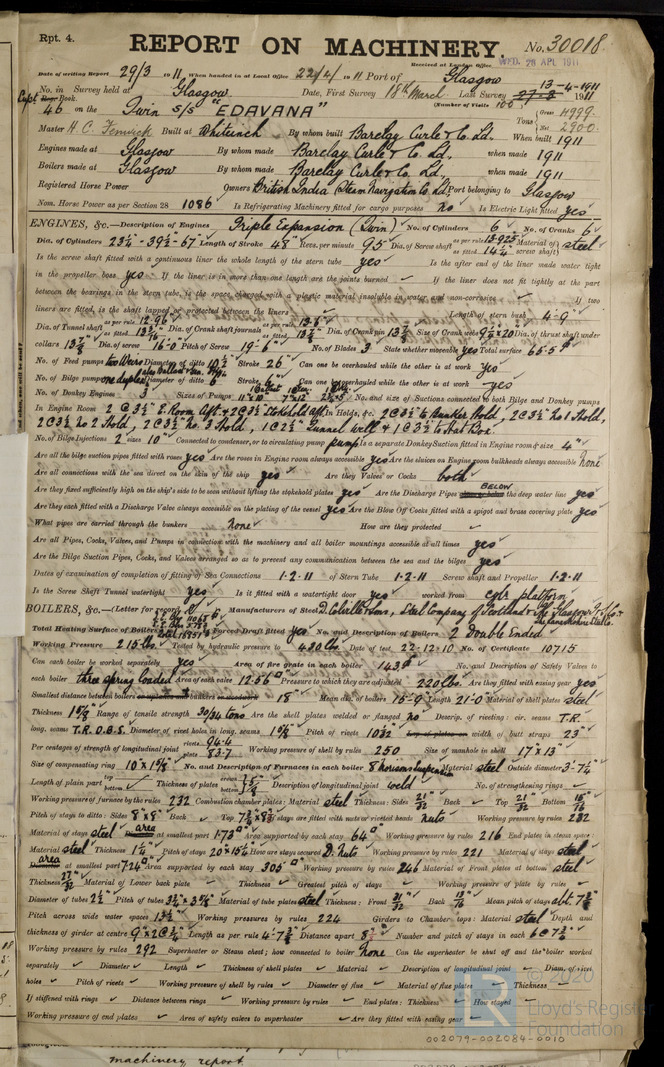 Rpt. 4.
REPORT ON MACHINERY. No. 30018
Received at London Office WED. 26 APL 1911
Date of writing Report 29/3 1911 When handed in at Local Office 22/4/ 1911 Port of Glasgow
No. in Survey held at Glasgow Date, First Survey 18th March Last Survey 27-3 13-4-1911 1911
Book.
46 on the Twin S/S "EDAVANA" (Number of Visits 100) Tons Gross 4999 Net 2900
Master H. C. Fenwick Built at Whiteinch By whom built Barclay Curle & Co. Ld. When built 1911
Engines made at Glasgow By whom made Barclay Curle & Co. Ld. when made 1911
Boilers made at Glasgow By whom made Barclay Curle & Co. Ld. when made 1911
Registered Horse Power Owners British India Steam Navigation Co. Ld. Port belonging to Glasgow
Nom. Horse Power as per Section 28 1086 Is Refrigerating Machinery fitted for cargo purposes no Is Electric Light fitted yes
ENGINES, &c.—Description of Engines Triple Expansion (Twin) No. of Cylinders 6 No. of Cranks 6
Dia. of Cylinders 23½-39½-57 Length of Stroke 48" Revs. per minute 95 Dia. of Screw shaft as per rule 13.925 as fitted 14¼ Material of screw shaft steel
Is the screw shaft fitted with a continuous liner the whole length of the stern tube yes Is the after end of the liner made water tight
in the propeller boss yes If the liner is in more than one length are the joints burned If the liner does not fit tightly at the part
between the bearings in the stern tube, is the space charged with a plastic material insoluble in water and non-corrosive If two
liners are fitted, is the shaft lapped or protected between the liners Length of stern bush 4-9
Dia. of Tunnel shaft as per rule 12.96 as fitted Dia. of Crank shaft journals as per rule 13.6 as fitted 13⅞ Dia. of Crank pin 13⅞ Size of Crank webs 9½x20 Dia. of thrust shaft under
collars 13⅞ Dia. of screw 16-0 Pitch of Screw 19-6 No. of Blades 3 State whether moveable yes Total surface 65.5
No. of Feed pumps two Weirs Diameter of ditto 10½ Stroke 26" Can one be overhauled while the other is at work yes
No. of Bilge pumps one duplex Diameter of ditto 6 Stroke 6" Can one be overhauled while the other is at work yes
No. of Donkey Engines 3 Sizes of Pumps No. and size of Suctions connected to both Bilge and Donkey pumps
In Engine Room 2 @ 3½" E. Room Aft & 2 @ 3½ Stokehold aft In Holds, &c. 2 @ 3½ to Bunker Hold, 2 @ 3½ no 1 Hold,
2 @ 3½ no 2 Hold, 2 @ 3½ no. 3 Hold, 1 @ 2½ Tunnel well & 1 @ 3½ to Hot Box.
No. of Bilge Injections 2 sizes 10" Connected to condenser, or to circulating pump pump Is a separate Donkey Suction fitted in Engine room & size 4"
Are all the bilge suction pipes fitted with roses yes Are the roses in Engine room always accessible yes Are the sluices on Engine room bulkheads always accessible none
Are all connections with the sea direct on the skin of the ship yes Are they Valves or Cocks both
Are they fixed sufficiently high on the ship's side to be seen without lifting the stokehold plates yes Are the Discharge Pipes above or below BELOW the deep water line yes
Are they each fitted with a Discharge Valve always accessible on the plating of the vessel yes Are the Blow Off Cocks fitted with a spigot and brass covering plate yes
What pipes are carried through the bunkers none How are they protected
Are all Pipes, Cocks, Valves, and Pumps in connection with the machinery and all boiler mountings accessible at all times yes
Are the Bilge Suction Pipes, Cocks, and Valves arranged so as to prevent any communication between the sea and the bilges yes
Dates of examination of completion of fitting of Sea Connections 1.2.11 of Stern Tube 1.2.11 Screw shaft and Propeller 1.2.11
Is the Screw Shaft Tunnel watertight yes Is it fitted with a watertight door yes worked from cylr platform
BOILERS, &c.—(Letter for record R) Manufacturers of Steel D. Colville & Sons, Steel Company of Scotland & The Glasgow I. & S. Co. The Lanarkshire Steel Co.
Total Heating Surface of Boilers Forced Draft fitted yes No. and Description of Boilers 2 Double Ended
Working Pressure 215 lbs Tested by hydraulic pressure to 430 lbs Date of test 22.12.10 No. of Certificate 10715
Can each boiler be worked separately yes Area of fire grate in each boiler 143 No. and Description of Safety Valves to
each boiler three spring loaded Area of each valve 12.56 Pressure to which they are adjusted 220 lbs. Are they fitted with easing gear yes
Smallest distance between boilers or uptakes and bunkers or woodwork 18" Mean dia. of boilers 15-9 Length 21-0 Material of shell plates steel
Thickness Range of tensile strength 30/34 tons Are the shell plates welded or flanged no Descrip. of riveting: cir. seams T.R.
long. seams T.R.D.B.S. Diameter of rivet holes in long. seams Pitch of rivets Lap of plates or width of butt straps 23"
Per centages of strength of longitudinal joint rivets 94.4 plate 83.7 Working pressure of shell by rules 250 Size of manhole in shell 17 x 13"
Size of compensating ring No. and Description of Furnaces in each boiler 8 Morisons Suspension Material steel Outside diameter 3-7¼"
Length of plain part top bottom Thickness of plates crown bottom Description of longitudinal joint weld No. of strengthening rings
Working pressure of furnace by the rules 232 Combustion chamber plates: Material steel Thickness: Sides 21/32 Back Top 21/32 Bottom 15/16
Pitch of stays to ditto: Sides 8"x8" Back Top If stays are fitted with nuts or riveted heads nuts Working pressure by rules 232
Material of stays steel area at smallest part 1.73 Area supported by each stay 64 Working pressure by rules 216 End plates in steam space:
Material steel Thickness Pitch of stays 20"x15¼ How are stays secured D. Nuts Working pressure by rules 221 Material of stays steel
area at smallest part 7.24 Area supported by each stay 305 Working pressure by rules 246 Material of Front plates at bottom steel
Thickness 27/32 Material of Lower back plate Thickness Greatest pitch of stays Working pressure of plate by rules
Diameter of tubes 2½" Pitch of tubes Material of tube plates steel Thickness: Front 31/32 Back 13/16 Mean pitch of stays
Pitch across wide water spaces 13½ Working pressures by rules 224 Girders to Chamber tops: Material steel Depth and
thickness of girder at centre 9"x2 @ ¾ Length as per rule 4-7¾ Distance apart Number and pitch of stays in each
Working pressure by rules 292 Superheater or Steam chest; how connected to boiler None Can the superheater be shut off and the boiler worked
separately Diameter Length Thickness of shell plates Material Description of longitudinal joint Diam. of rivet
holes Pitch of rivets Working pressure of shell by rules Diameter of flue Material of flue plates Thickness
If stiffened with rings Distance between rings Working pressure by rules End plates: Thickness How stayed
Working pressure of end plates Area of safety valves to superheater Are they fitted with easing gear
© 2020
Lloyd's Register
Foundation
002079-002084-0010
machinery report